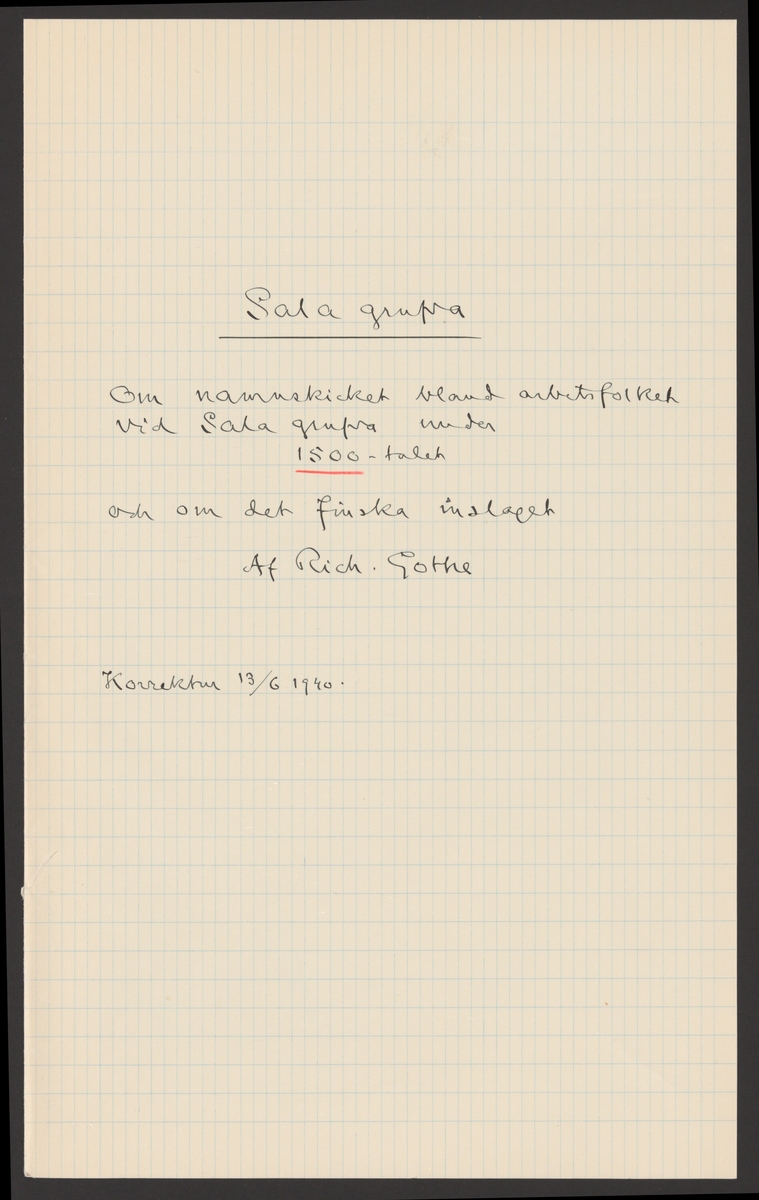 Sala grufva
Om namnskicket bland arbetsfolket
vid Sala grufva under
1500-talet
och om det finska inslaget
Af Rich. Gothe
Korrektur 13/6 1940.